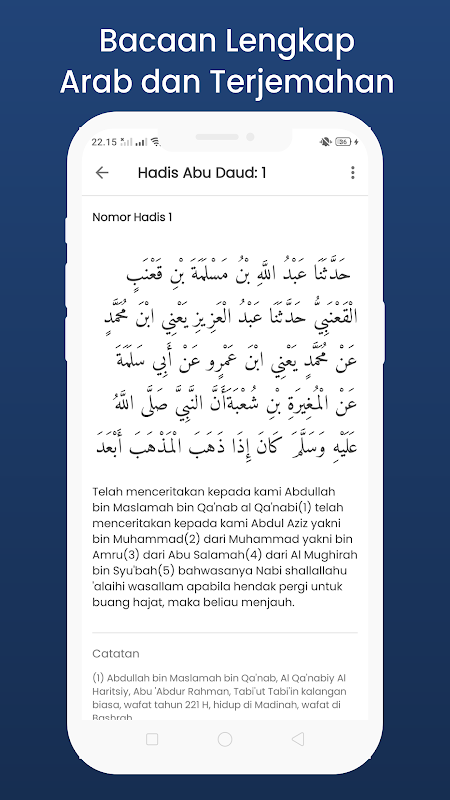 Bacaan Lengkap
Arab dan Terjemahan
22.15
36
Hadis Abu Daud: 1
Nomor Hadis 1
حَدَّثَنَا عَبْدُ اللَّهِ بْنُ مَسْلَمَةَ بْنِ قَعْنَبٍ
الْقَعْنَبِيُّ حَدَّثَنَا عَبْدُ الْعَزِيزِ يَعْنِي ابْنَ مُحَمَّدٍ
عَنْ مُحَمَّدٍ يَعْنِي ابْنَ عَمْرٍو عَنْ أَبِي سَلَمَةَ
عَنْ الْمُغِيرَةِ بْنِ شُعْبَةَأَنَّ النَّبِيَّ صَلَّى اللَّهُ
عَلَيْهِ وَسَلَّمَ كَانَ إِذَا ذَهَبَ الْمَذْهَبَ أَبْعَدَ
Telah menceritakan kepada kami Abdullah
bin Maslamah bin Qa'nab al Qa'nabi(1) telah
menceritakan kepada kami Abdul Aziz yakni
bin Muhammad(2) dari Muhammad yakni bin
Amru(3) dari Abu Salamah(4) dari Al Mughirah
bin Syu'bah(5) bahwasanya Nabi shallallahu
'alaihi wasallam apabila hendak pergi untuk
buang hajat, maka beliau menjauh.
Catatan
(1) Abdullah bin Maslamah bin Qa'nab, Al Qa'nabiy Al
Haritsiy, Abu 'Abdur Rahman, Tabi'ut Tabi'in kalangan
biasa, wafat tahun 221 H, hidup di Madinah, wafat di
Bashrah